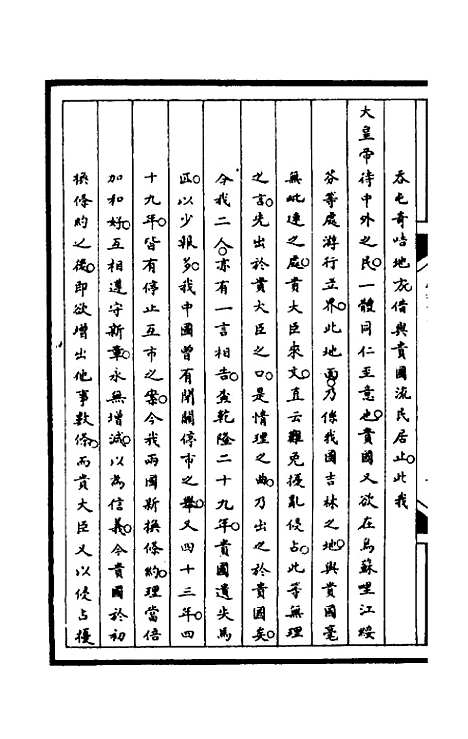 吞屯奇咭地方借與貴國流民居止此我
大皇帝待中外之民一體同仁至意也貴國又欲在烏蘇哩江綏
芬等處游行立界此地面乃係我國吉林之地與貴國毫
無毗連之處貴大臣來文直云難免擾亂侵占此等無理
之言先出於貴大臣之口是情理之曲乃出之於貴國矣
今我二人亦有一言相告查乾隆二十九年貴國遺失馬
匹以少報多我中國曾有閉關停市之舉又四十三年四
十九年皆有停止互市之案今我兩國新換條約理當倍
加和好互相遵守新章永無增減以為信義今貴國於初
換條約之後即欲增出他事數條而貴大臣又以侵占擾